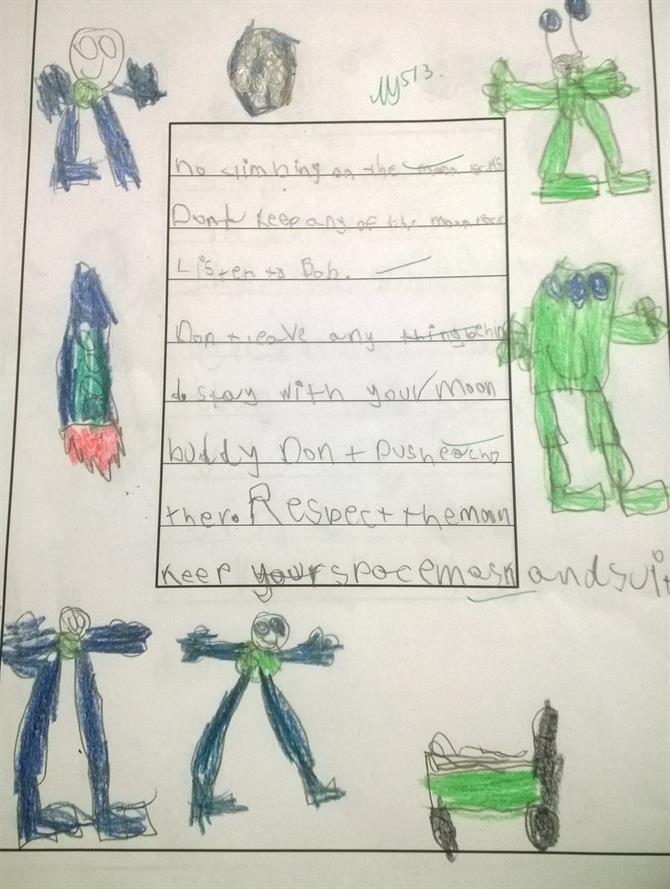 no climbing on the moon rocks
Dont keep any of the moon rock
Listen to Bob.
Don t leave any thing behin
do stay with your moon
buddy Don t push eacho
ther. Respect the moon
keep your spacemask and suit